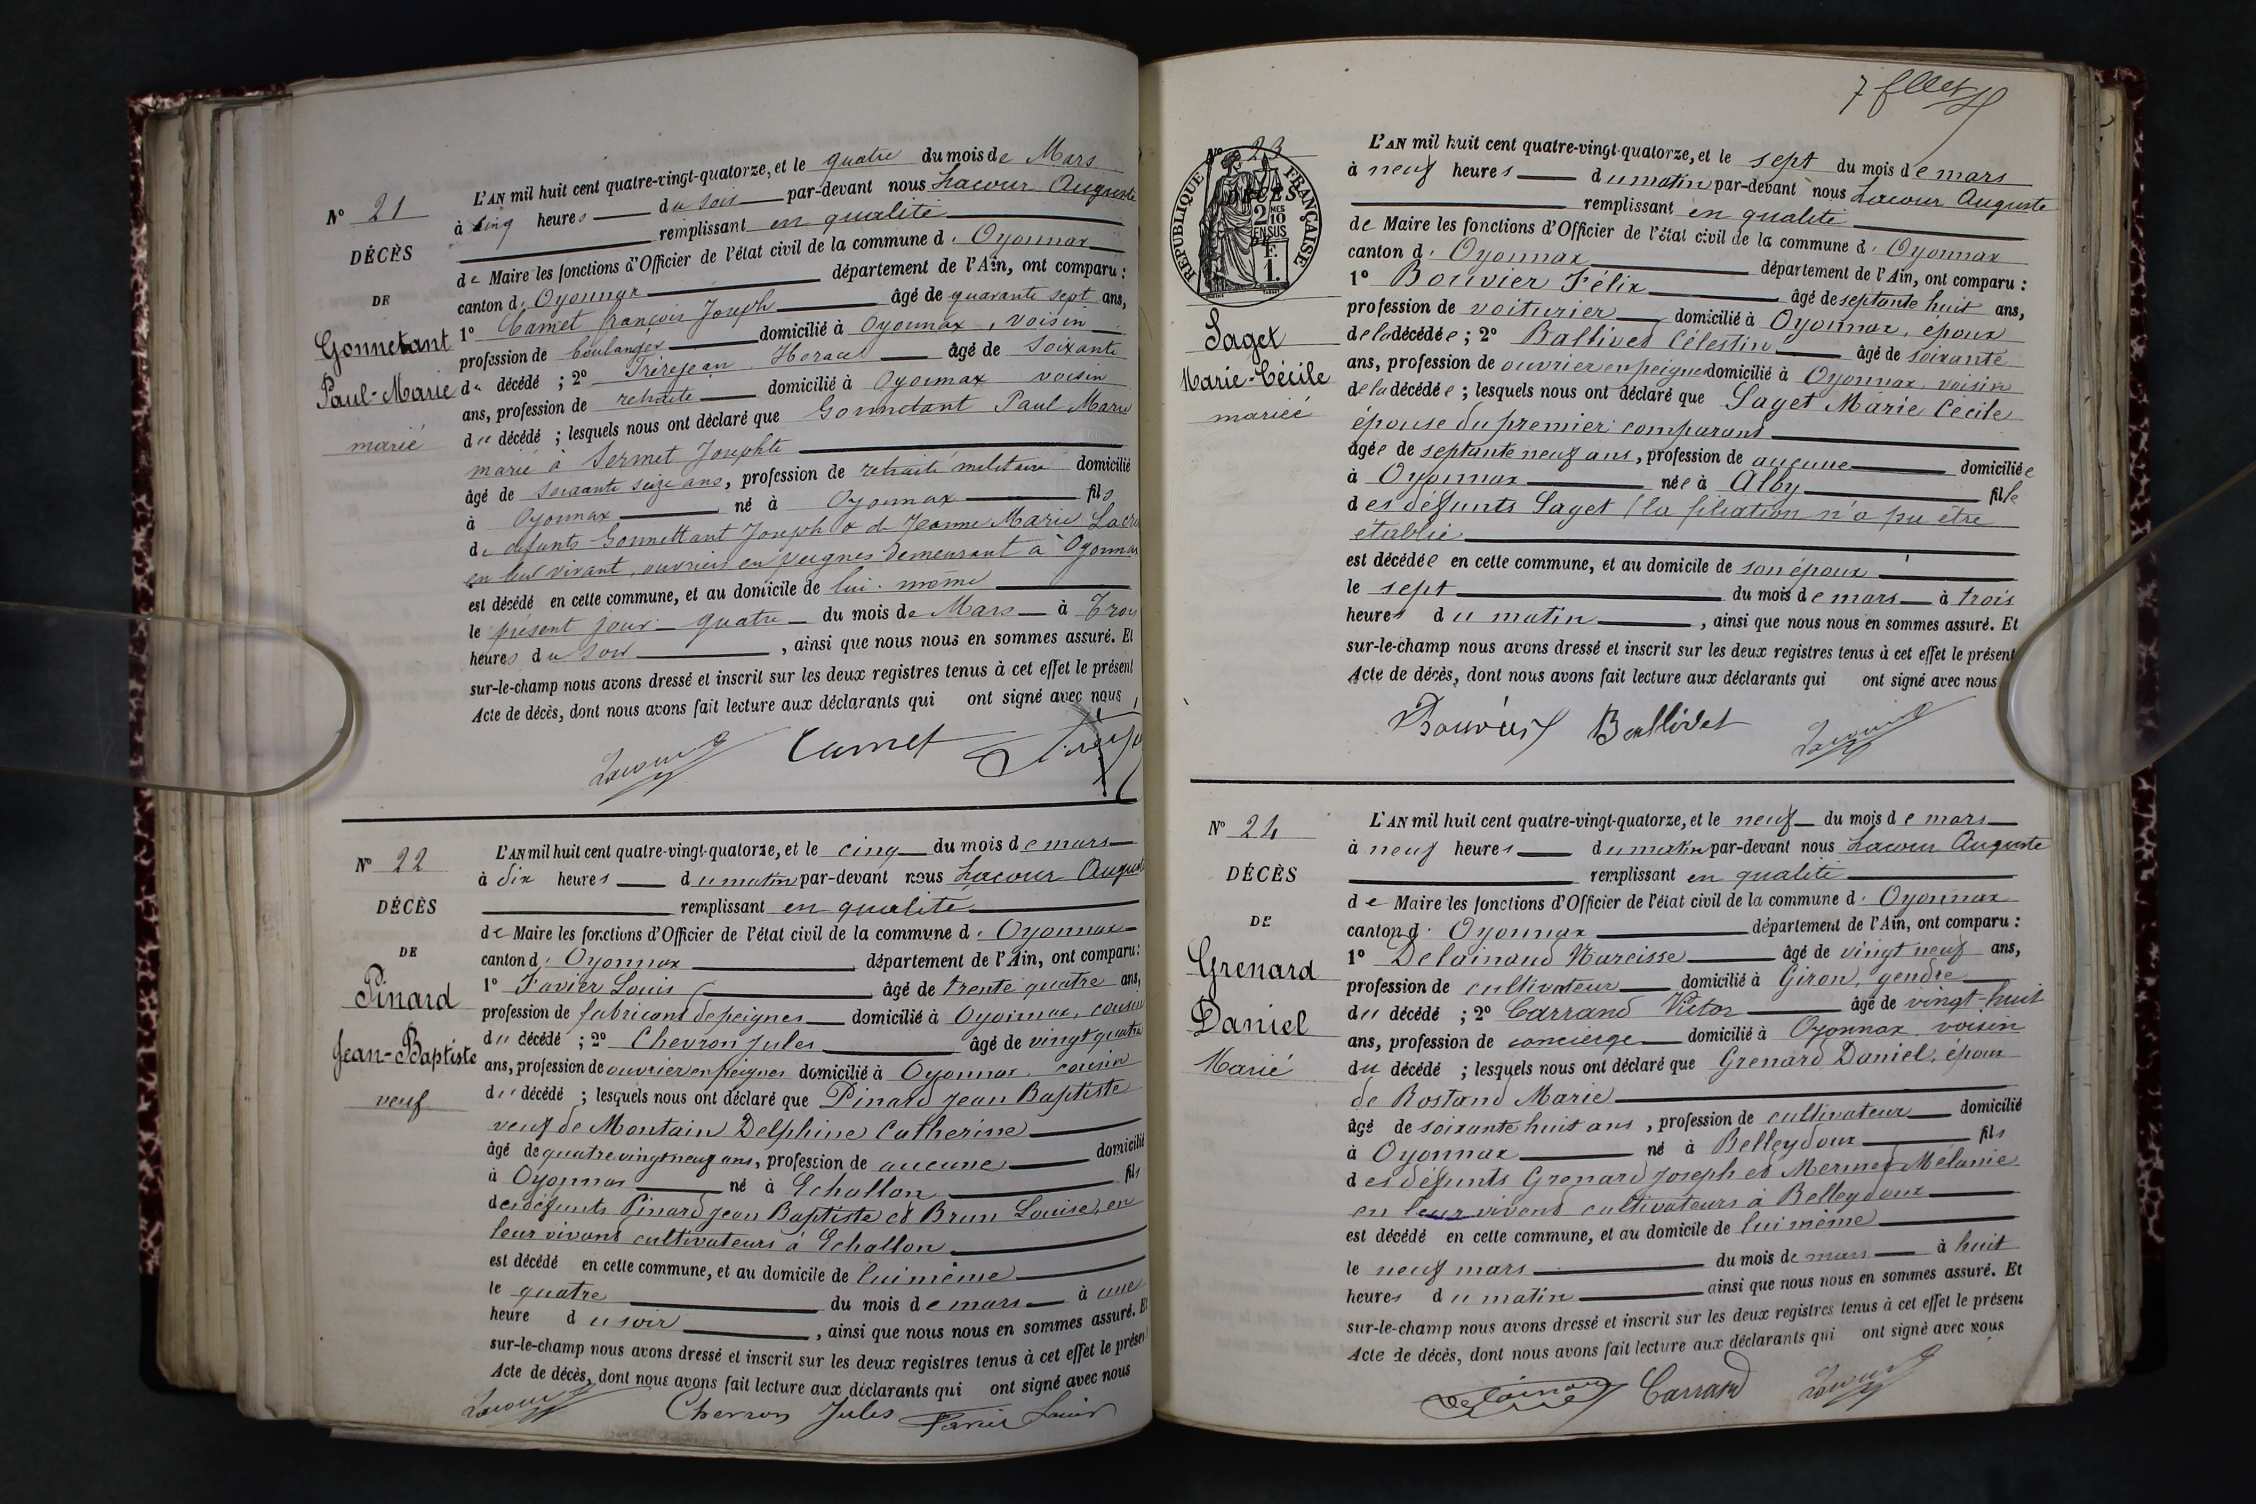 N° 21
DÉCÈS
DE
Gonnetant
Paul-Marie
marié
L'AN mil huit cent quatre-vingt-quatorze, et le quatre du mois de Mars
à cinq heures du soir par-devant nous Lacour Auguste
remplissant en qualité
de Maire les fonctions d'Officier de l'état civil de la commune d' Oyonnax
canton d' Oyonnax département de l'Ain, ont comparu :
1° Carnet françois Joseph âgé de quarante sept ans,
profession de boulanger domicilié à Oyonnax, voisin
du décédé ; 2° Frèrejean Horace âgé de soixante
ans, profession de retraité domicilié à Oyonnax voisin
du décédé ; lesquels nous ont déclaré que Gonnetant Paul Marie
marié à Sermet Josephte
âgé de soixante seize ans, profession de retraité militaire domicilié
à Oyonnax né à Oyonnax fils
de défunts Gonnettant Joseph & de Jeanne Marie
en leur vivant, ouvriers en peignes demeurant à Oyonnax
est décédé en cette commune, et au domicile de lui-même
le présent jour quatre du mois de Mars à Trois
heures du soir, ainsi que nous nous en sommes assuré. Et
sur-le-champ nous avons dressé et inscrit sur les deux registres tenus à cet effet le présent
Acte de décès, dont nous avons fait lecture aux déclarants qui ont signé avec nous
Lacour Carnet
N° 22
DÉCÈS
DE
Pinard
Jean-Baptiste
veuf
L'AN mil huit cent quatre-vingt-quatorze, et le cinq du mois de mars
à dix heures du matin par-devant nous Lacour Auguste
remplissant en qualité
de Maire les fonctions d'Officier de l'état civil de la commune d' Oyonnax
canton d' Oyonnax département de l'Ain, ont comparu :
1° Favier Louis âgé de trente quatre ans,
profession de fabricant de peignes domicilié à Oyonnax, cousin
du décédé ; 2° Chevron Jules âgé de vingt quatre
ans, profession de ouvrier en peignes domicilié à Oyonnax, cousin
du décédé ; lesquels nous ont déclaré que Pinard Jean Baptiste
veuf de Montain Delphine Catherine
âgé de quatre vingt neuf ans, profession de aucune domicilié
à Oyonnax né à Echallon fils
des défunts Pinard Jean Baptiste et Brun Louise, en
leur vivant cultivateurs à Echallon
est décédé en cette commune, et au domicile de lui même
le quatre du mois de mars à une
heure du soir, ainsi que nous nous en sommes assuré. Et
sur-le-champ nous avons dressé et inscrit sur les deux registres tenus à cet effet le présent
Acte de décès, dont nous avons fait lecture aux déclarants qui ont signé avec nous
Lacour Chevron Jules Favier Louis
7
N° 23
RÉPUBLIQUE FRANÇAISE
DÉCÈS
2 MES 10 EN SUS
1 F.
Saget
Marie-Cécile
mariée
L'AN mil huit cent quatre-vingt-quatorze, et le sept du mois de mars
à neuf heures du matin par-devant nous Lacour Auguste
remplissant en qualité
de Maire les fonctions d'Officier de l'état civil de la commune d' Oyonnax
canton d' Oyonnax département de l'Ain, ont comparu :
1° Bouvier Félix âgé de septante huit ans,
profession de voiturier domicilié à Oyonnax, époux
de la décédée ; 2° Ballivet Célestin âgé de soixante
ans, profession de ouvrier en peignes domicilié à Oyonnax, voisin
de la décédée ; lesquels nous ont déclaré que Saget Marie Cécile
épouse du premier comparant
âgée de septante neuf ans, profession de aucune domiciliée
à Oyonnax née à Alby fille
des défunts Saget (la filiation n'a pu être
établie
est décédée en cette commune, et au domicile de son époux
le sept du mois de mars à trois
heures du matin, ainsi que nous nous en sommes assuré. Et
sur-le-champ nous avons dressé et inscrit sur les deux registres tenus à cet effet le présent
Acte de décès, dont nous avons fait lecture aux déclarants qui ont signé avec nous
Bouvier Ballivet Lacour
N° 24
DÉCÈS
DE
Grenard
Daniel
Marié
L'AN mil huit cent quatre-vingt-quatorze, et le neuf du mois de mars
à neuf heures du matin par-devant nous Lacour Auguste
remplissant en qualité
de Maire les fonctions d'Officier de l'état civil de la commune d' Oyonnax
canton d' Oyonnax département de l'Ain, ont comparu :
1° Delainaud Narcisse âgé de vingt neuf ans,
profession de cultivateur domicilié à Giron, gendre
du décédé ; 2° Carrand Victor âgé de vingt-huit
ans, profession de concierge domicilié à Oyonnax voisin
du décédé ; lesquels nous ont déclaré que Grenard Daniel, époux
de Rostand Marie
âgé de soixante huit ans, profession de cultivateur domicilié
à Oyonnax né à Belleydoux fils
des défunts Grenard Joseph et Mermet Mélanie
en leur vivant cultivateurs à Belleydoux
est décédé en cette commune, et au domicile de lui même
le neuf mars du mois de mars à huit
heures du matin ainsi que nous nous en sommes assuré. Et
sur-le-champ nous avons dressé et inscrit sur les deux registres tenus à cet effet le présent
Acte de décès, dont nous avons fait lecture aux déclarants qui ont signé avec nous
Delainaud Carrand Lacour